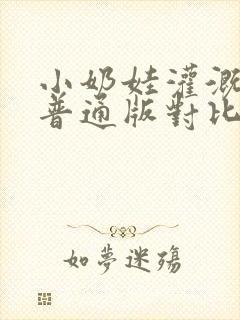 小奶娃灌溉
普通版對比
如夢迷殤